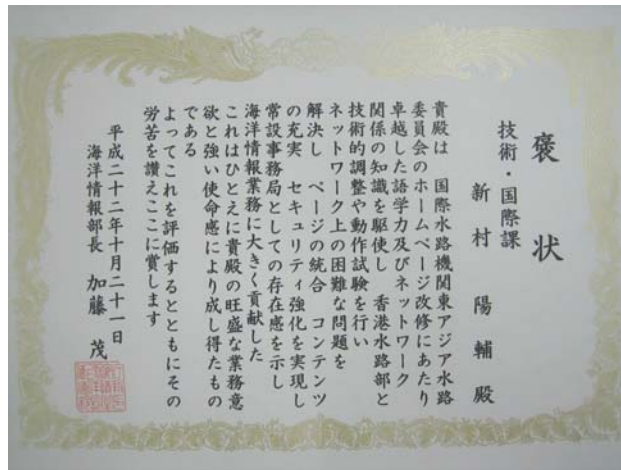 褒状
技術・国際課
新村陽輔殿
貴殿は 国際水路機関東アジア水路
委員会のホームページ改修にあたり
卓越した語学力及びネットワーク
関係の知識を駆使し 香港水路部と
技術的調整や動作試験を行い
ネットワーク上の困難な問題を
解決し ページの統合 コンテンツ
の充実 セキュリティ強化を実現し
常設事務局としての存在感を示し
海洋情報業務に大きく貢献した
これはひとえに貴殿の旺盛な業務意
欲と強い使命感により成し得たもの
である
よってこれを評価するとともにその
労苦を讃えここに賞します
平成二十二年十月二十一日
海洋情報部長 加藤 茂